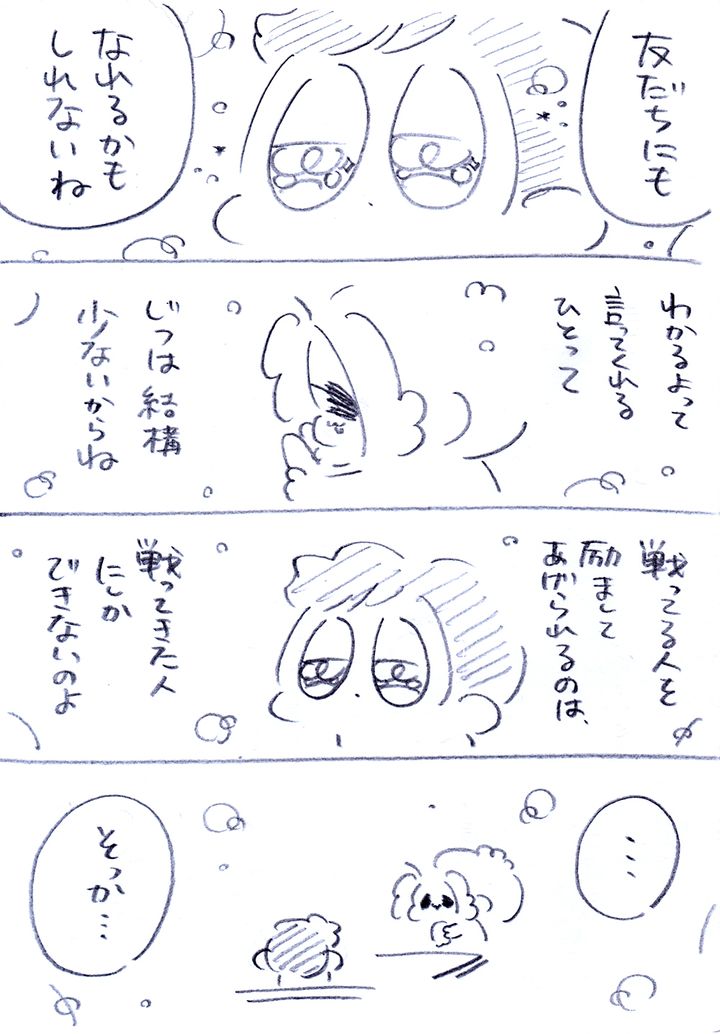 友だちにも
なれるかも
しれないね
わかるよって
言ってくれる
ひとって
じつは結構
少ないからね
戦ってる人を
励まして
あげられるのは、
戦ってきた人
にしか
できないのよ
…
そっか…